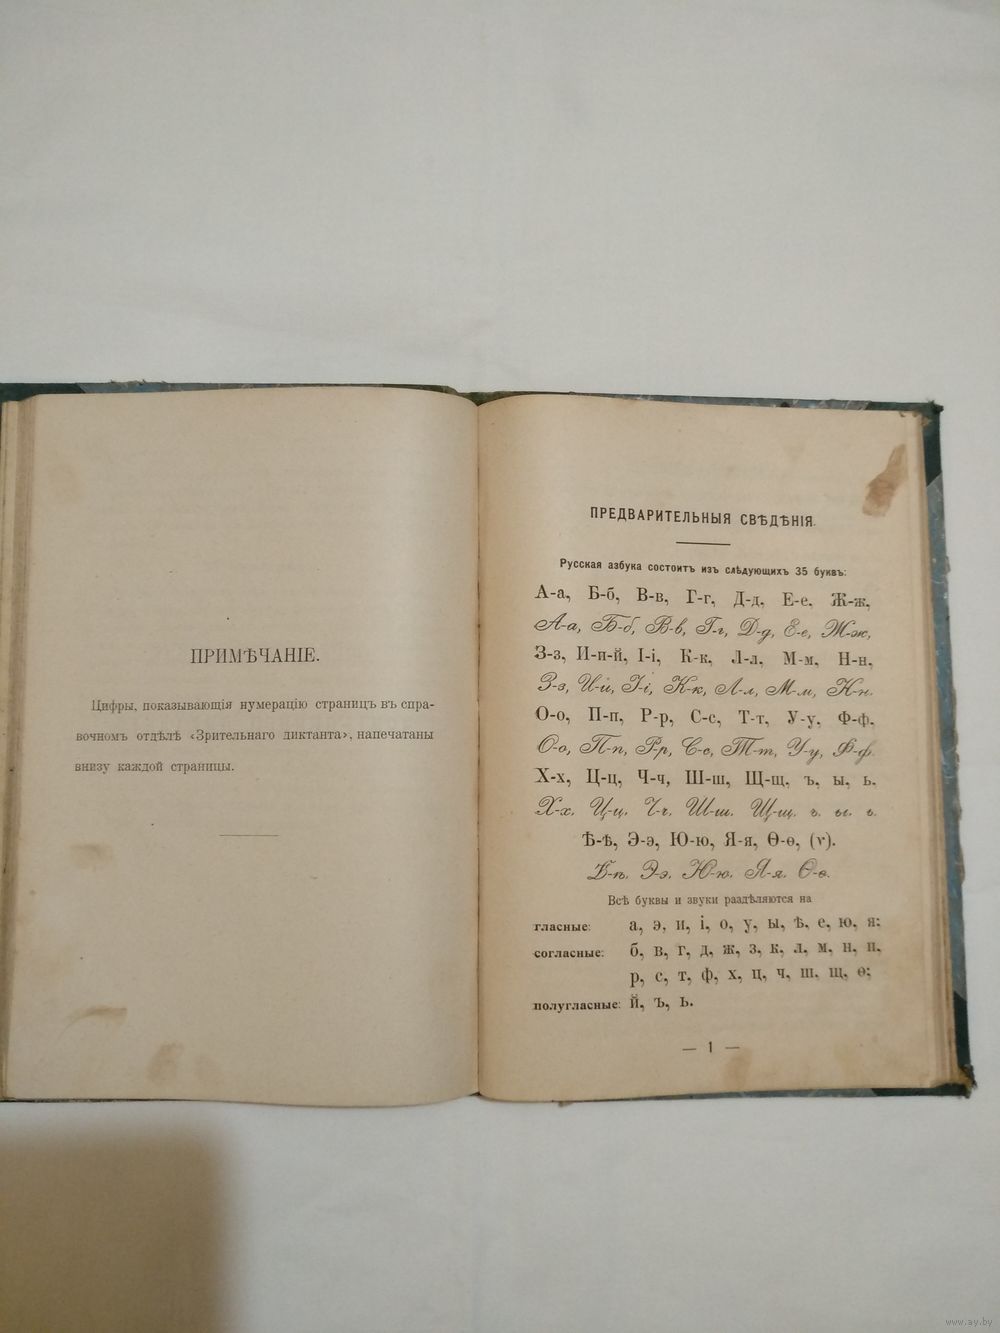 ПРИМѢЧАНІЕ.
Цифры, показывающія нумерацію страницъ въ спра-
вочномъ отдѣлѣ «Зрительнаго диктанта», напечатаны
внизу каждой страницы.
ПРЕДВАРИТЕЛЬНЫЯ СВѢДѢНІЯ.
Русская азбука состоитъ изъ слѣдующихъ 35 буквъ:
А-а, Б-б, В-в, Г-г, Д-д, Е-е, Ж-ж,
А-а, Б-б, В-в, Г-г, Д-д, Е-е, Ж-ж,
З-з, И-и-й, І-і, К-к, Л-л, М-м, Н-н,
З-з, И-й, І-і, К-к, Л-л, М-м, Н-н.
О-о, П-п, Р-р, С-с, Т-т, У-у, Ф-ф,
О-о, П-п, Р-р, С-с, Т-т, У-у, Ф-ф.
Х-х, Ц-ц, Ч-ч, Ш-ш, Щ-щ, ъ, ы, ь.
Х-х. Ц-ц. Ч-ч. Ш-ш. Щ-щ. ъ. ы. ь.
Ѣ-ѣ, Э-э, Ю-ю, Я-я, Ѳ-ѳ, (ѵ).
Ѣ-ѣ. Э-э. Ю-ю. Я-я. Ѳ-ѳ.
Всѣ буквы и звуки раздѣляются на
гласные: а, э, и, і, о, у, ы, ѣ, е, ю, я;
согласные: б, в, г, д, ж, з, к, л, м, н, п,
р, с, т, ф, х, ц, ч, ш, щ, ѳ;
полугласные: й, ъ, ь.
— 1 —
www.ay.by